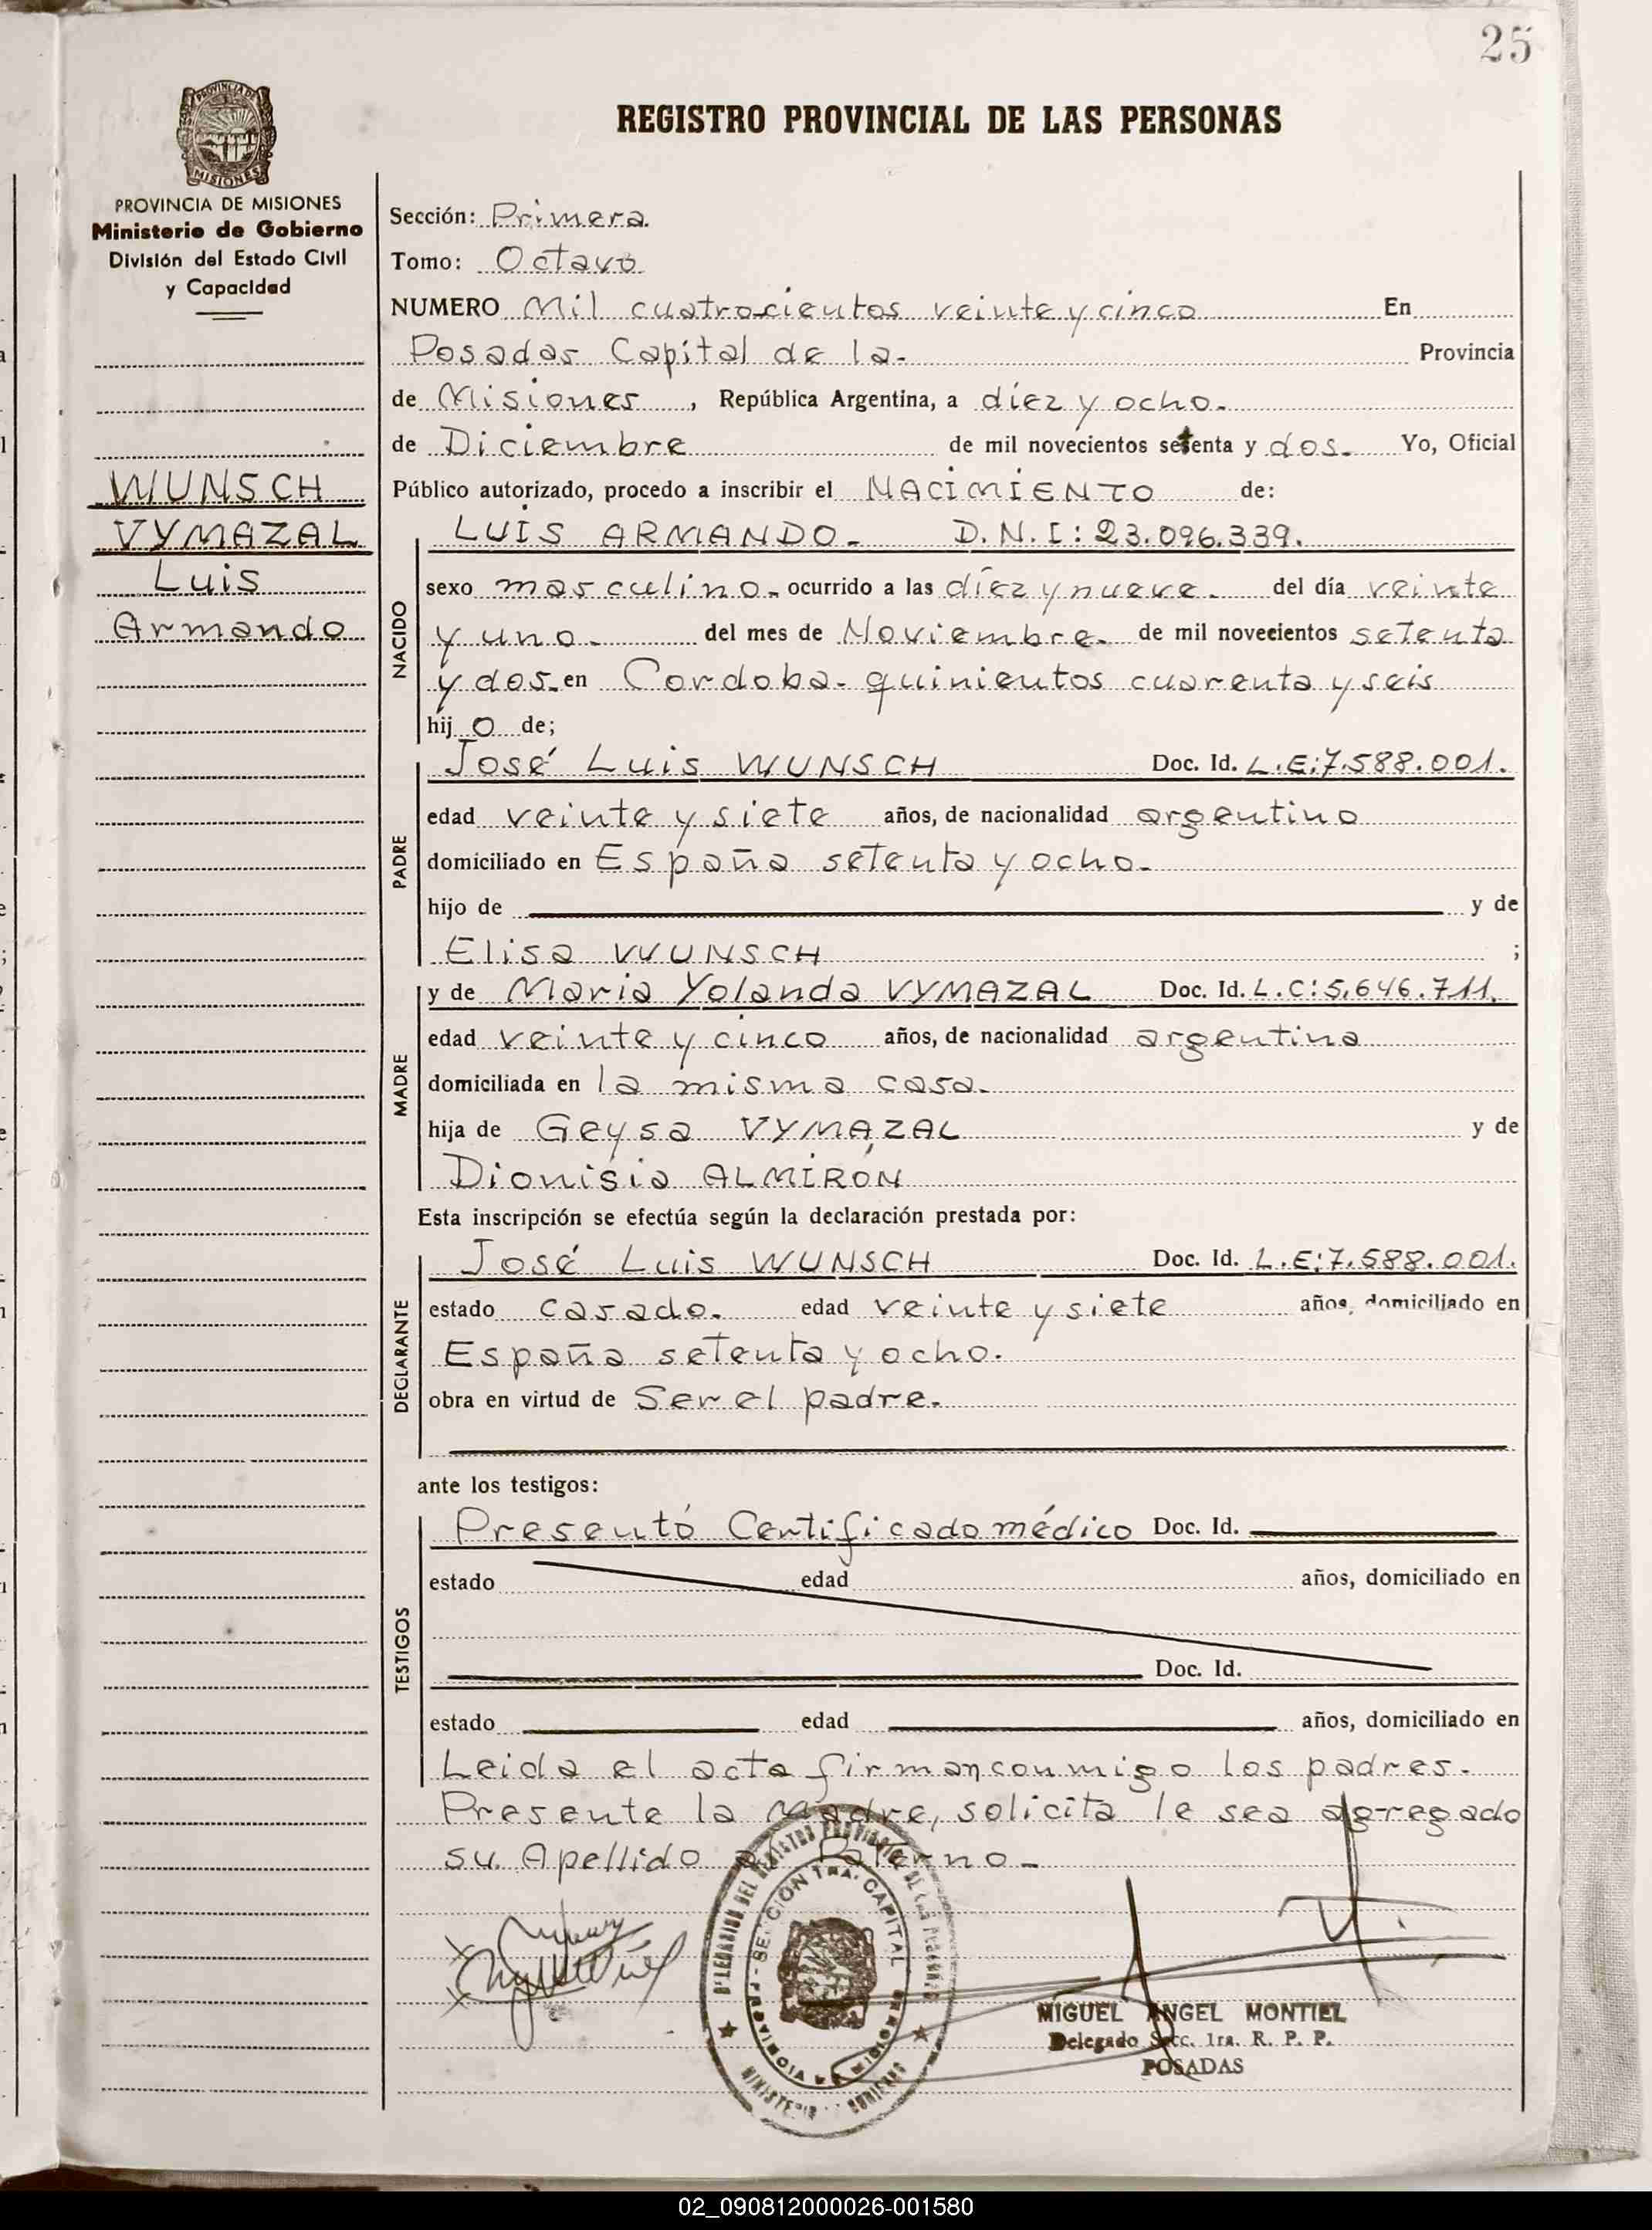 25
PROVINCIA DE
MISIONES
REGISTRO PROVINCIAL DE LAS PERSONAS
PROVINCIA DE MISIONES
Ministerio de Gobierno
División del Estado Civil
y Capacidad
WUNSCH
VYMAZAL
Luis
Armando
Sección: Primera
Tomo: Octavo
NUMERO Mil cuatrocientos veinte y cinco En
Posadas Capital de la- Provincia
de Misiones, República Argentina, a díez y ocho-
de Diciembre de mil novecientos setenta y dos- Yo, Oficial
Público autorizado, procedo a inscribir el NACIMIENTO de:
NACIDO
LUIS ARMANDO- D.N.I: 23.096.339.
sexo masculino- ocurrido a las díez y nueve- del día veinte
y uno- del mes de Noviembre- de mil novecientos setenta
y dos- en Cordoba- quinientos cuarenta y seis
hijo de;
PADRE
José Luis WUNSCH Doc. Id. L.E:7.588.001.
edad veinte y siete años, de nacionalidad argentino
domiciliado en España setenta y ocho-
hijo de y de
Elisa WUNSCH ;
MADRE
y de Maria Yolanda VYMAZAL Doc. Id. L.C:5.646.711.
edad veinte y cinco años, de nacionalidad argentina
domiciliada en la misma casa-
hija de Geysa VYMAZAL y de
Dionisia ALMIRÓN
Esta inscripción se efectúa según la declaración prestada por:
DECLARANTE
José Luis WUNSCH Doc. Id. L.E:7.588.001.
estado casado- edad veinte y siete años, domiciliado en
España setenta y ocho.
obra en virtud de Ser el padre-
ante los testigos:
TESTIGOS
Presentó Certificado médico Doc. Id.
estado edad años, domiciliado en
Doc. Id.
estado edad años, domiciliado en
Leida el acta firman conmigo los padres-
Presente la Madre, solicita le sea agregado
su Apellido al Paterno-
SECCION 1RA. CAPITAL
PROVINCIA DE MISIONES
MIGUEL ANGEL MONTIEL
Delegado Secc. 1ra. R. P. P.
POSADAS
02_090812000026-001580